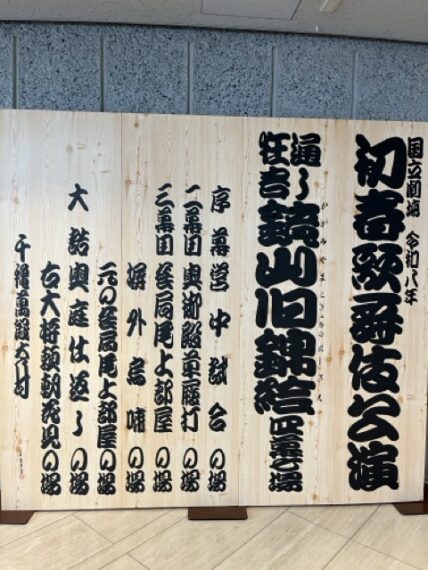 国立劇場 令和八年
初春歌舞伎公演
通し狂言 鏡山旧錦絵 四幕七場
かがみやまこきょうのにしきえ
序幕 営中試合の場
二幕目 奥御殿草履打の場
三幕目 長局尾上部屋の場
塀外烏啼の場
元の長局尾上部屋の場
大詰 奥庭仕返しの場
右大将頼朝花見の場
千穐萬歳大々叶